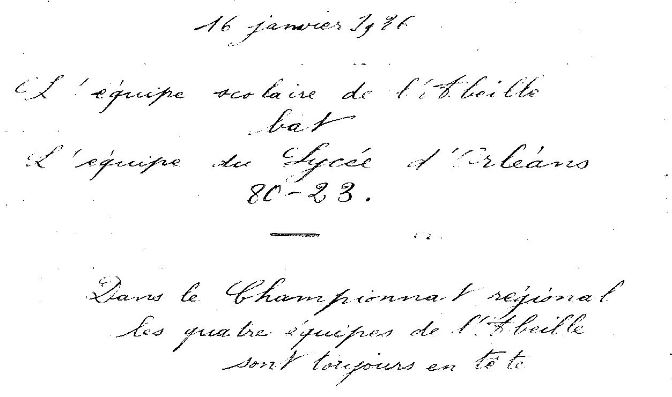 16 janvier 1936
L'équipe scolaire de l'Abeille
bat
L'équipe du Lycée d'Orléans
80-23.
Dans le Championnat régional
les quatre équipes de l'Abeille
sont toujours en tête